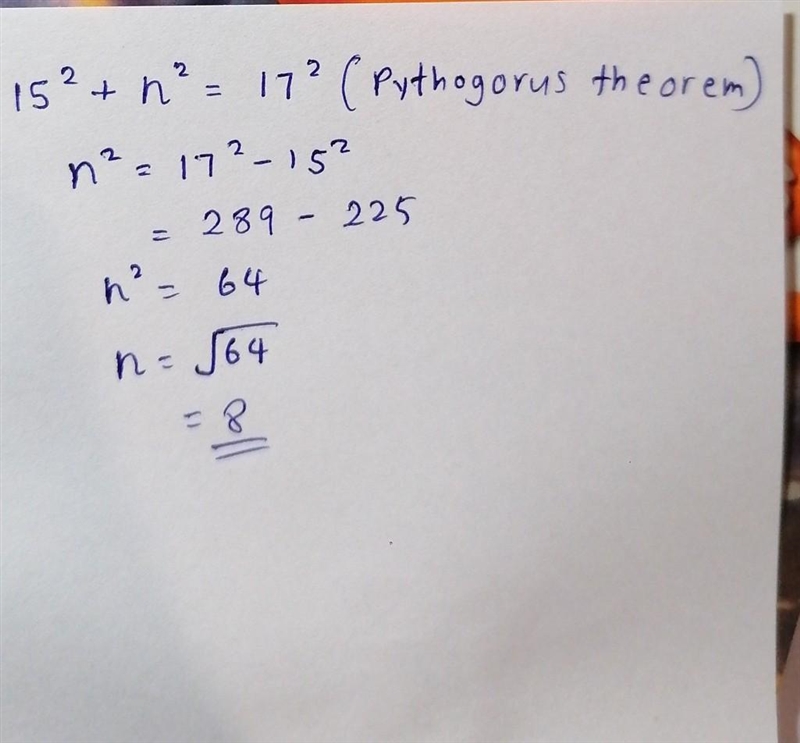 15² + n² = 17² (Pythogorus theorem)
n² = 17² - 15²
= 289 - 225
n² = 64
n = √64
= 8